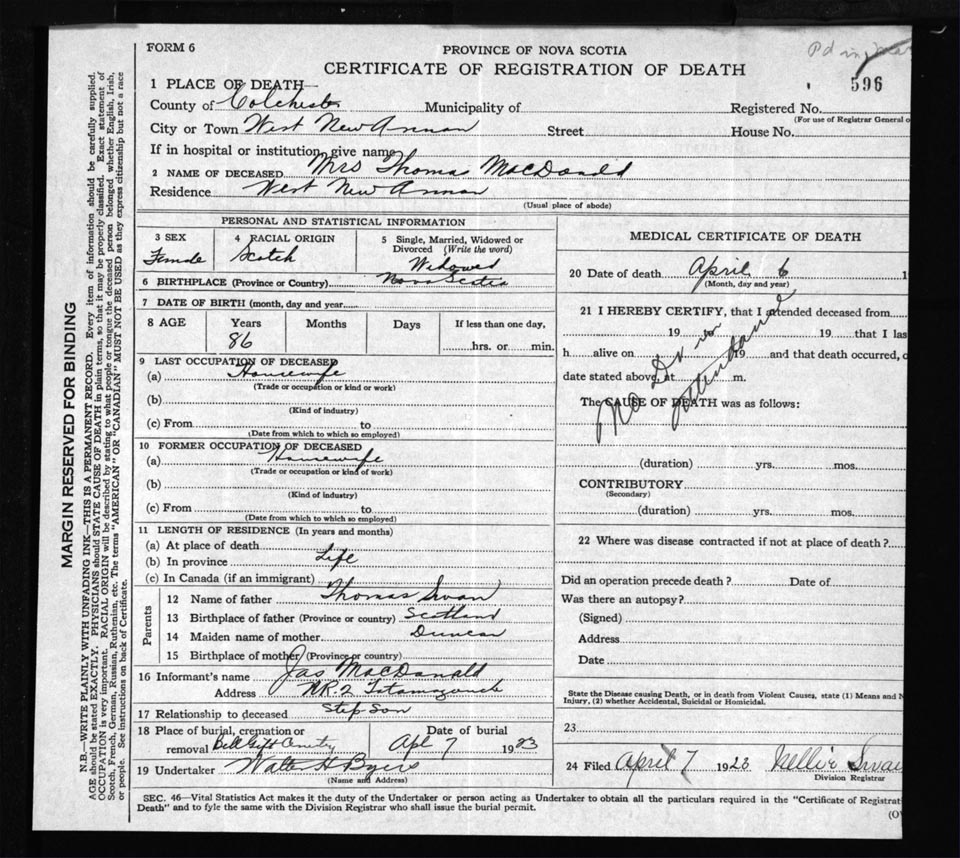 FORM 6
PROVINCE OF NOVA SCOTIA
Pd in
CERTIFICATE OF REGISTRATION OF DEATH
596
1 PLACE OF DEATH—
County of Colchester Municipality of Registered No.
(For use of Registrar General o
City or Town West New Annan Street House No.
If in hospital or institution, give name
2 NAME OF DECEASED Mrs Thomas MacDonald
Residence West New Annan
(Usual place of abode)
PERSONAL AND STATISTICAL INFORMATION
3 SEX 4 RACIAL ORIGIN 5 Single, Married, Widowed or
Divorced (Write the word)
Female Scotch Widowed
6 BIRTHPLACE (Province or Country) Nova Scotia
7 DATE OF BIRTH (month, day and year)
8 AGE Years Months Days If less than one day,
86 hrs. or min.
9 LAST OCCUPATION OF DECEASED
(a) Housewife
(Trade or occupation or kind or work)
(b)
(Kind of industry)
(c) From to
(Date from which to which so employed)
10 FORMER OCCUPATION OF DECEASED
(a) Housewife
(Trade or occupation or kind of work)
(b)
(Kind of industry)
(c) From to
(Date from which to which so employed)
11 LENGTH OF RESIDENCE (In years and months)
(a) At place of death
(b) In province Life
(c) In Canada (if an immigrant)
Parents
12 Name of father Thomas Swan
13 Birthplace of father (Province or country) Scotland
14 Maiden name of mother Duncan
15 Birthplace of mother (Province or country)
16 Informant's name Jas MacDonald
Address RR2 Tatamagouche
17 Relationship to deceased Step Son
18 Place of burial, cremation or Date of burial
removal Apl 7 1923
19 Undertaker Walter H Byers
(Name and Address)
MEDICAL CERTIFICATE OF DEATH
20 Date of death April 6 1
(Month, day and year)
21 I HEREBY CERTIFY, that I attended deceased from
19 to 19 that I las
h alive on 19 and that death occurred, o
date stated above, at m.
No Dr in attendance
The CAUSE OF DEATH was as follows:
(duration) yrs. mos.
CONTRIBUTORY
(Secondary)
(duration) yrs. mos.
22 Where was disease contracted if not at place of death?
Did an operation precede death? Date of
Was there an autopsy?
(Signed)
Address
Date
State the Disease causing Death, or in death from Violent Causes, state (1) Means and N
Injury, (2) whether Accidental, Suicidal or Homicidal.
23
24 Filed April 7 1923 Nellie Swan
Division Registrar
SEC. 46—Vital Statistics Act makes it the duty of the Undertaker or person acting as Undertaker to obtain all the particulars required in the "Certificate of Registrat
Death" and to fyle the same with the Division Registrar who shall issue the burial permit.
(O
MARGIN RESERVED FOR BINDING
N.B.—WRITE PLAINLY WITH UNFADING INK—THIS IS A PERMANENT RECORD. Every item of information should be carefully supplied.
AGE should be stated EXACTLY. PHYSICIANS should STATE CAUSE OF DEATH in plain terms, so that it may be properly classified. Exact statement of
OCCUPATION is very important. RACIAL ORIGIN will be described by stating to what people or tongue the deceased person belonged, whether English, Irish,
Scotch, French, German, Russian, Ruthenian, etc. The terms "AMERICAN" OR "CANADIAN" MUST NOT BE USED as they express citizenship but not a race
or people. See instructions on back of Certificate.